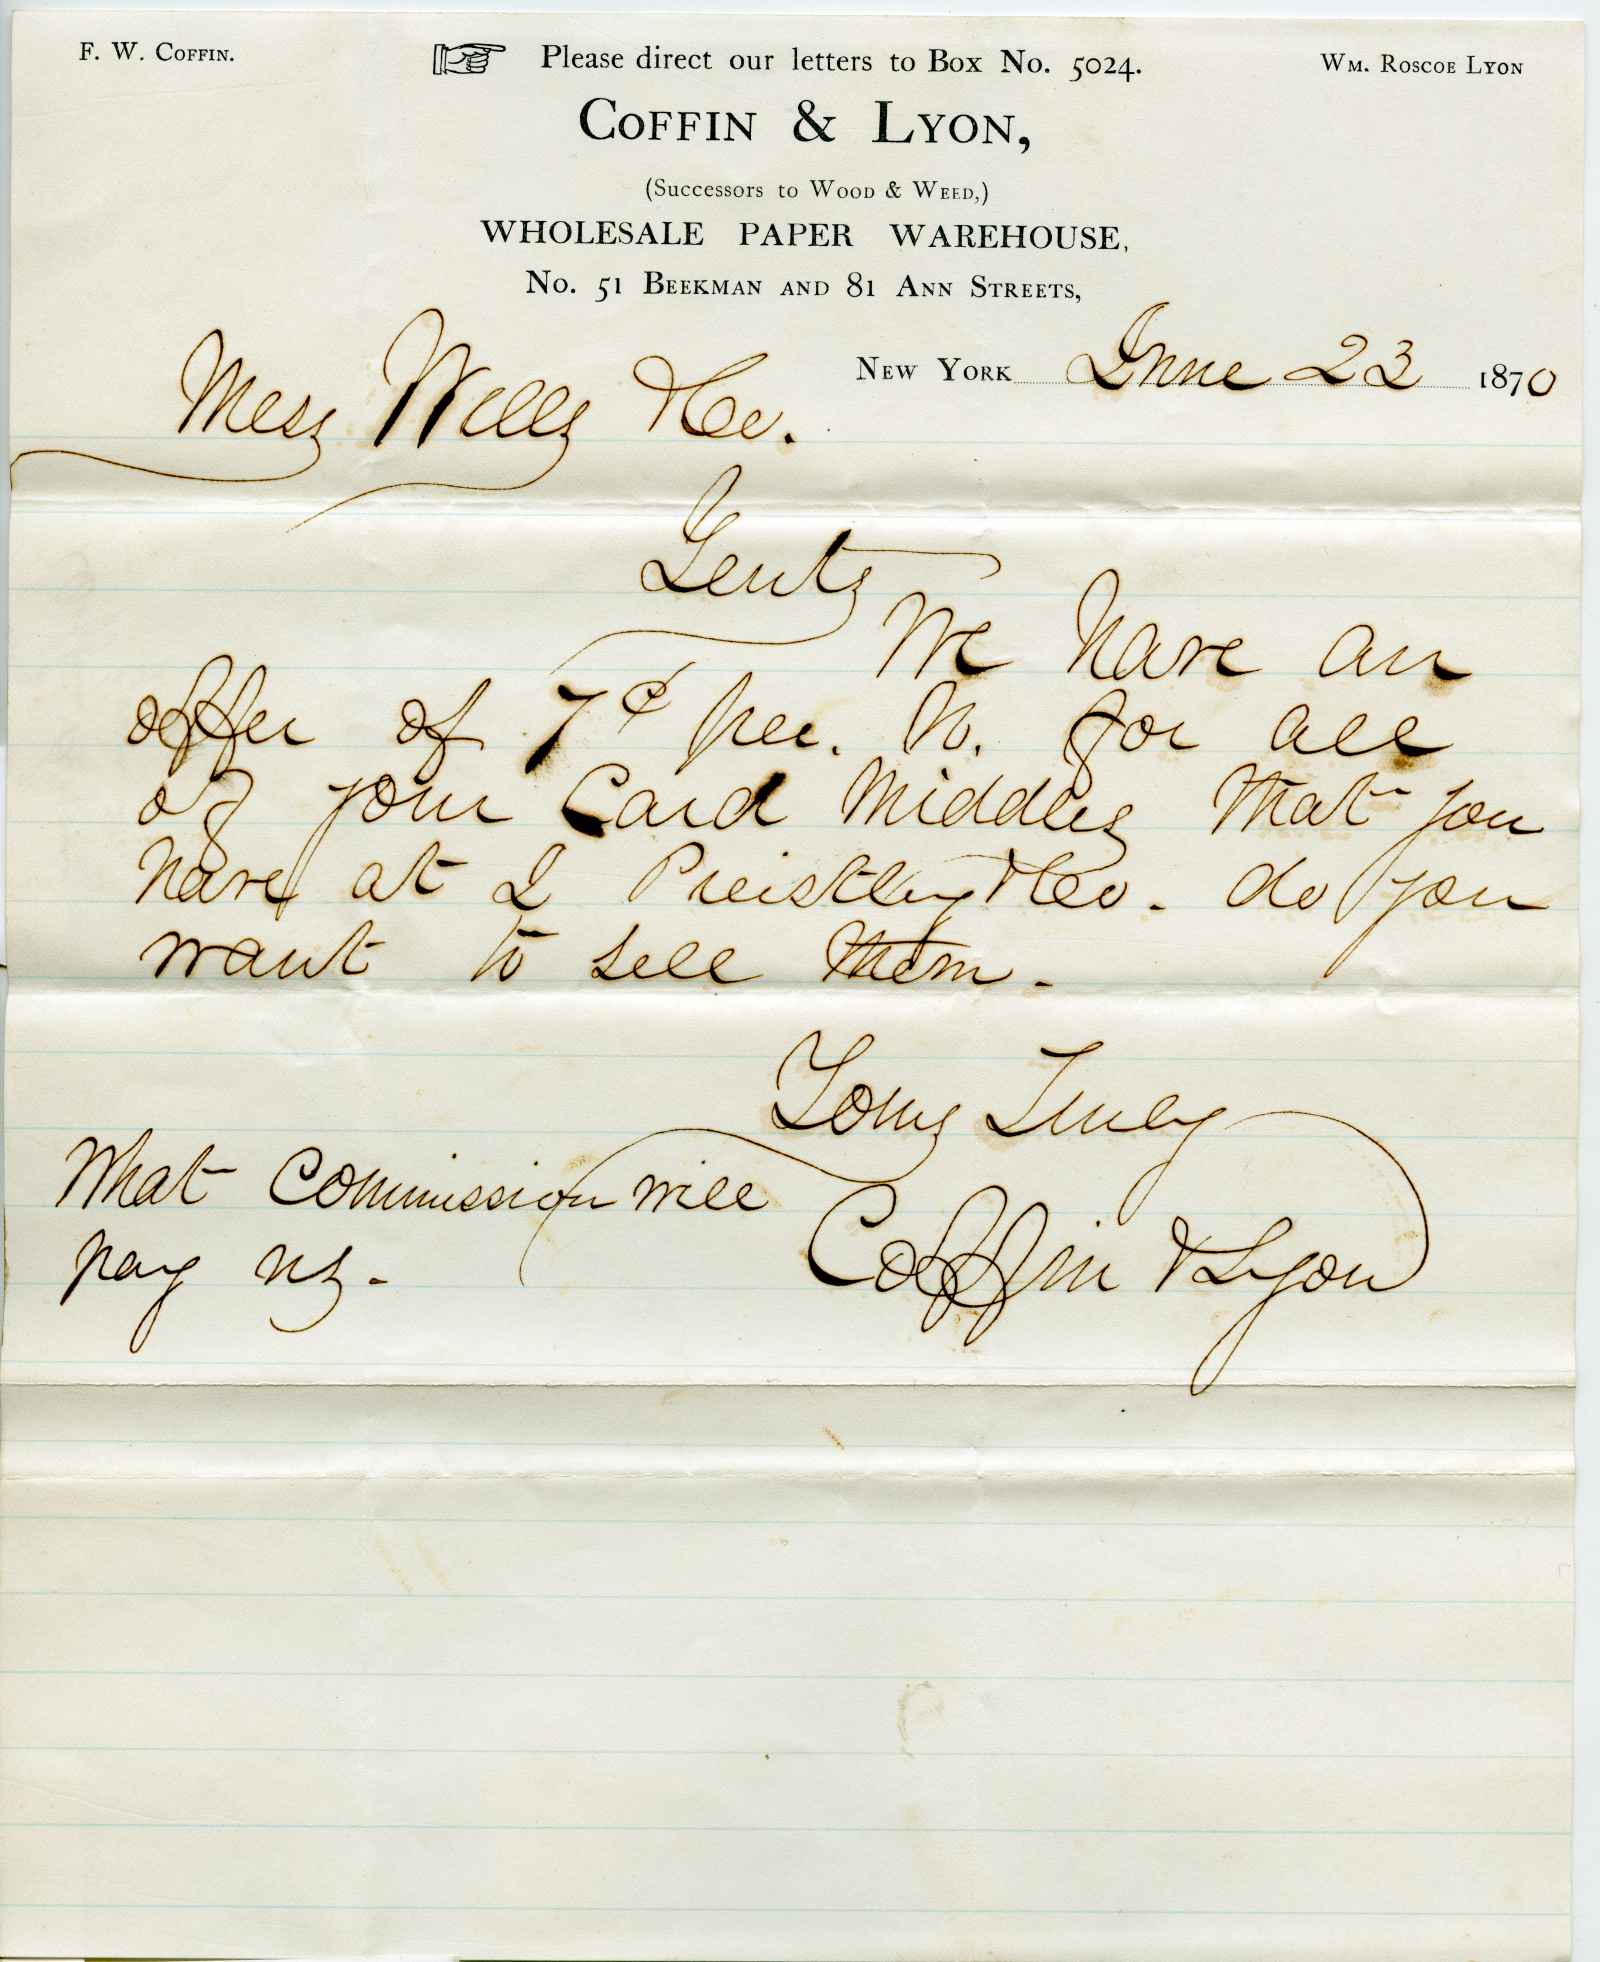 F. W. Coffin.
Please direct our letters to Box No. 5024.
Wm. Roscoe Lyon
Coffin & Lyon,
(Successors to Wood & Weed,)
WHOLESALE PAPER WAREHOUSE,
No. 51 Beekman and 81 Ann Streets,
New York June 23 1870
Mess Wills & Co.
Gents
We have an
offer of 7¢ per. lb. for all
of your Card Middles that you
have at I Preistley & Co. do you
want to sell them.
Yours Truly
Coffin & Lyon
What Commission will
pay us.